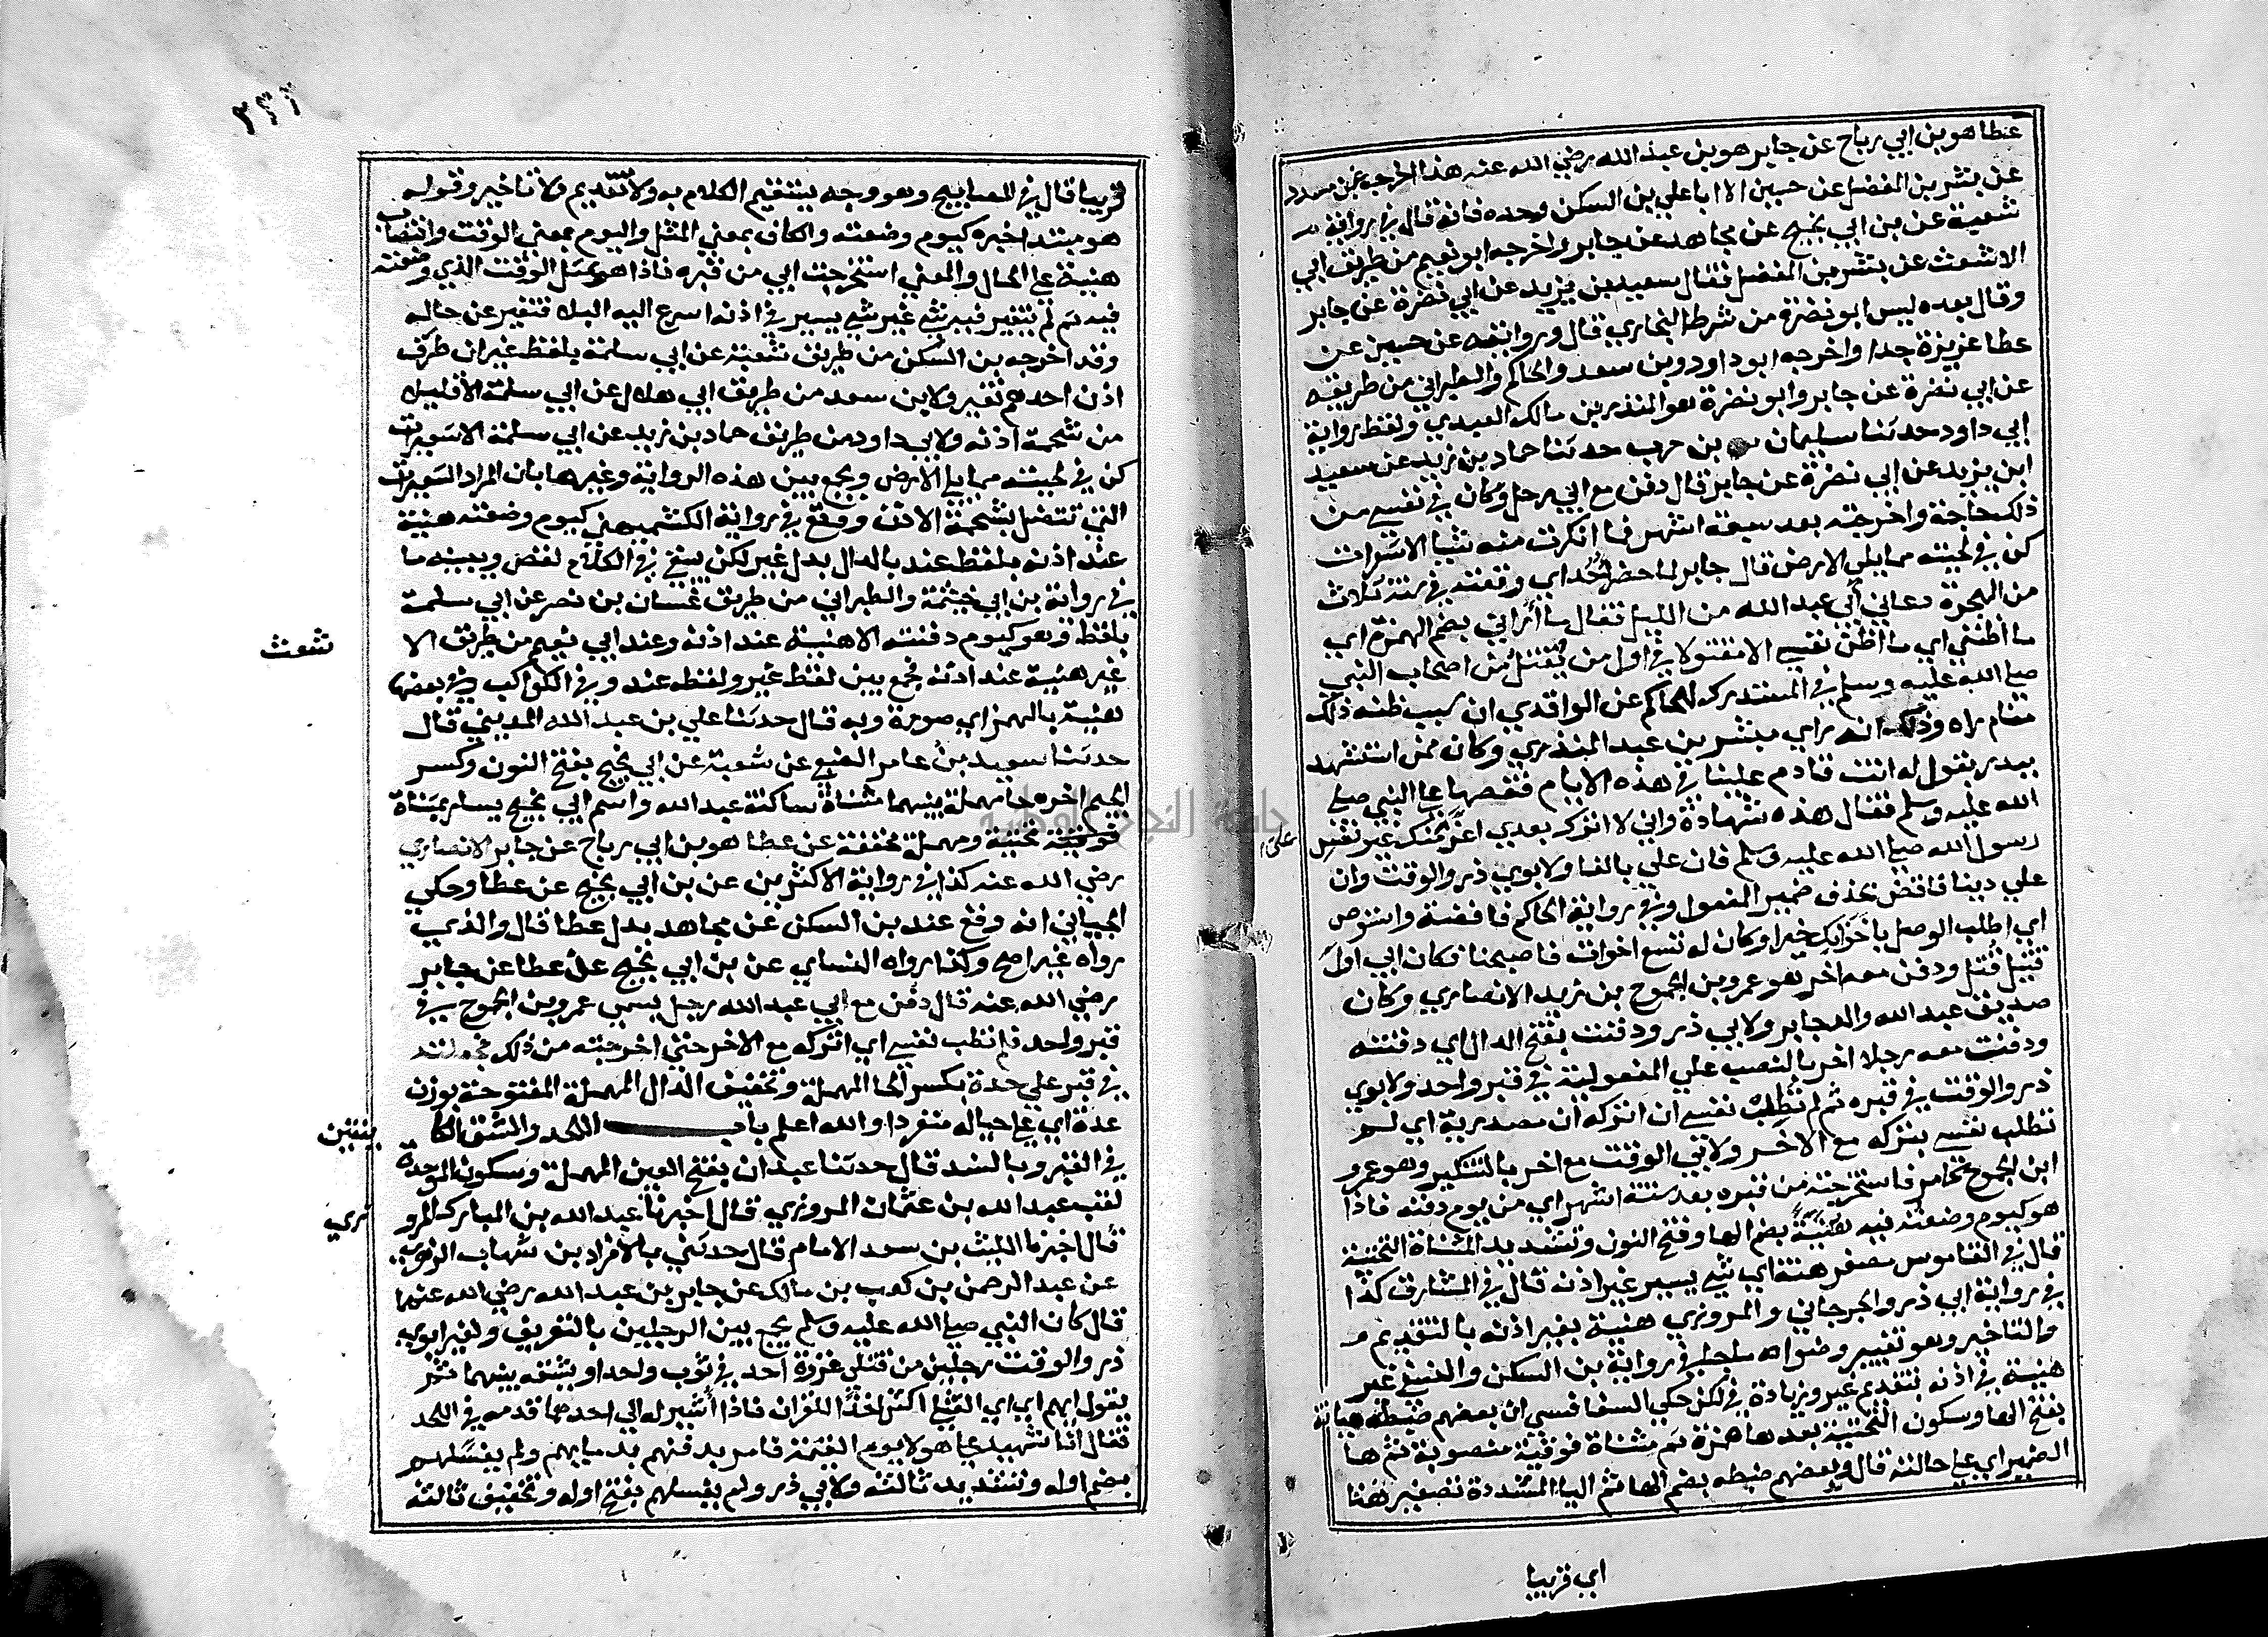 عطا هو بن ابي رباح عن جابر هو بن عبد الله رضي الله عنه هذا اخرجه عن مسدد
عن بشر بن المفضل عن حسين الا ابا علي بن السكن وحده فانه قال في روايته
شعبة عن بن ابي نجيح عن مجاهد عن جابر واخرجه ابو نعيم من طريق ابي
الاشعث عن بشر بن المفضل فقال سعيد بن يزيد عن ابي نضرة عن جابر
وقال بعده ليس ابو نضرة من شرط البخاري قال وروايته عن حسين عن
عطا عزيزة جدا واخرجه ابو داود وبن سعد والحاكم والطبراني من طريقه
عن ابي نضرة عن جابر وابو نضرة هو المنذر بن مالك العبدي ولفظ رواية
ابي داود حدثنا سليمان بن حرب حدثنا حماد بن زيد عن سعيد
ابن يزيد عن ابي نضرة عن جابر قال دفن مع ابي رجل وكان في نفسي من
ذلك حاجة واخرجته بعد ستة اشهر فما انكرت منه شيا الا شعرات
كن في لحيته مما يلي الارض قال جابر لما حضر احد اي وقعته في سنة ثلاث
من الهجرة دعاني ابي عبد الله من الليل فقال ما أُراني بضم الهمزة اي
ما اظنني اي ما اظن نفسي الا مقتولا في اول من يُقتل من اصحاب النبي
صلى الله عليه وسلم في المستدرك للحاكم عن الواقدي ان سبب ظنه ذلك
منام راه وذلك انه راي مبشر بن عبد المنذر وكان ممن استشهد
ببدر يقول له انت قادم علينا في هذه الايام فقصها على النبي صلى
الله عليه وسلم فقال هذه شهادة واني لا اترك بعدي اعز علي منك غير نفس
على
رسول الله صلى الله عليه وسلم فان علي بالفا ولابوي ذر والوقت وان
علي دينا فاقض بحذف ضمير المفعول وفي رواية الحاكم فاقضه واستوص
اي اطلب الوصل باخواتك خيرا وكان له تسع اخوات فاصبحنا فكان ابي اول
قتيل قُتل ودفن معه اخر هو عمرو بن الجموح بن زيد الانصاري وكان
صديق عبد الله والد جابر ولابي ذر ودفنت بفتح الدال اي دفنته
ودفنت معه رجلا اخر بالنصب على المفعولية في قبر واحد ولابوي
ذر والوقت في قبره ثم لم تطب نفسي ان اتركه ان مصدرية اي لم
تطب نفسي بتركه مع الآخر ولابي الوقت مع اخر بالتنكير وهو عمرو
ابن الجموح فاستخرجته من قبره بعد ستة اشهر اي من يوم دفنه فاذا
هو كيوم وضعته فيه هُنَيّةً بضم الها وفتح النون وتشديد المثناة التحتية
قال في القاموس مصغر هنة اي شي يسير غير اذنه قال في المشارق كذا
في رواية ابي ذر والجرجاني والمروزي هنية بغير اذنه بالتقديم
والتاخير وهو تغيير وصوابه ما جا في رواية بن السكن والنسفي غير
هنية في اذنه بتقديم غير وزيادة في لكن حكي السفاقسي ان بعضهم ضبطه هيأته
بفتح الها وسكون التحتية بعدها همزة ثم مثناة فوقية منصوبة ثم ها
الضمير اي على حالته قال وبعضهم ضبطه بضم الها ثم اليا المشددة تصغير هنا
اي قريبا
٢٢٢
قريبا قال في المصابيح وهو وجه يستقيم الكلام به ولا تقديم ولا تاخير وقوله
هو مبتدا خبره كيوم وضعته والكاف بمعني المثل واليوم بمعني الوقت وانتصاب
هنية على الحال والمعني استخرجت ابي من قبره فاذا هو بمثل الوقت الذي وضعته
فيه ثم لم يتغير فيه شي غير شي يسير في اذنه اسرع اليه البلا فتغير عن حاله
وقد اخرجه بن السكن من طريق شعبة عن ابي سلمة بلفظ غير ان طرف
اذن احدهم تغير ولابن سعد من طريق ابي هلال عن ابي سلمة الا قليلا
من شحمة اذنه ولابي داود من طريق حماد بن زيد عن ابي سلمة الا شعيرات
كن في لحيته مما يلي الارض ويجمع بين هذه الرواية وغيرها بان المراد الشعيرات
التي تتصل بشحمة الاذن ووقع في رواية الكشميهني كيوم وضعته هنية
عند اذنه بلفظ عند بالدال بدل غير لكن يبقى في الكلام نقص ويبينه ما
في رواية بن ابي خيثمة والطبراني من طريق غسان بن نصر عن ابي سلمة
بلفظ وهو كيوم دفنته الا هنية عند اذنه وعند ابي نعيم من طريق الا
شعث
غير هنية عند اذنه فجمع بين لفظ غير ولفظ عند وفي الكواكب وفي بعضها
هنية بالهمز اي صورة وبه قال حدثنا علي بن عبد الله المديني قال
حدثنا سعيد بن عامر الضبعي عن شعبة عن ابي نجيح بفتح النون وكسر
الجيم اخره حا مهملة بينهما مثناة ساكنة عبد الله واسم ابي نجيح يسار بمثناة
فوقية تحتية ومهملة مخففة عن عطا هو بن ابي رباح عن جابر الانصاري
رضي الله عنه كذا في رواية الاكثرين عن بن ابي نجيح عن عطا وحكي
الجياني انه وقع عند بن السكن عن مجاهد بدل عطا قال والذي
رواه غيره اصح وكذا رواه النساي عن بن ابي نجيح عن عطا عن جابر
رضي الله عنه قال دُفن مع ابي عبد الله رجل يسمي عمرو بن الجموح في
قبر واحد فلم تطب نفسي اي اتركه مع الاخر حتي اخرجته من ذلك فجعلته
في قبر على حدة بكسر الحا المهملة وتخفيف الدال المهملة المفتوحة بوزن
عدة اي على حياله منفردا والله اعلم باب اللحد والشق الكا
ينين
في القبر وبالسند قال حدثنا عبدان بفتح العين المهملة وسكون الموحدة
لقب عبد الله بن عثمان المروزي قال اخبرنا عبد الله بن المبارك المرو
زي
قال اخبرنا الليث بن سعد الامام قال حدثني بالافراد بن شهاب الزهري
عن عبد الرحمن بن كعب بن مالك عن جابر بن عبد الله رضي الله عنهما
قال كان النبي صلى الله عليه وسلم يجمع بين الرجلين بالتعريف ولغير ابوي
ذر والوقت رجلين من قتلى غزوة احد في ثوب واحد او يشقه بينهما ثم
يقول ايهم اي اي القتلى اكثر اخذا للقران فاذا أُشير له الي احدهما قدمه في اللحد
فقال انا شهيد على هولا يوم القيمة فامر بدفنهم بدمايهم ولم يغسلهم
بضم اوله وتشديد ثالثه ولابي ذر ولم يغسلهم بفتح اوله وتخفيف ثالثه
جامعة النجاح الوطنية